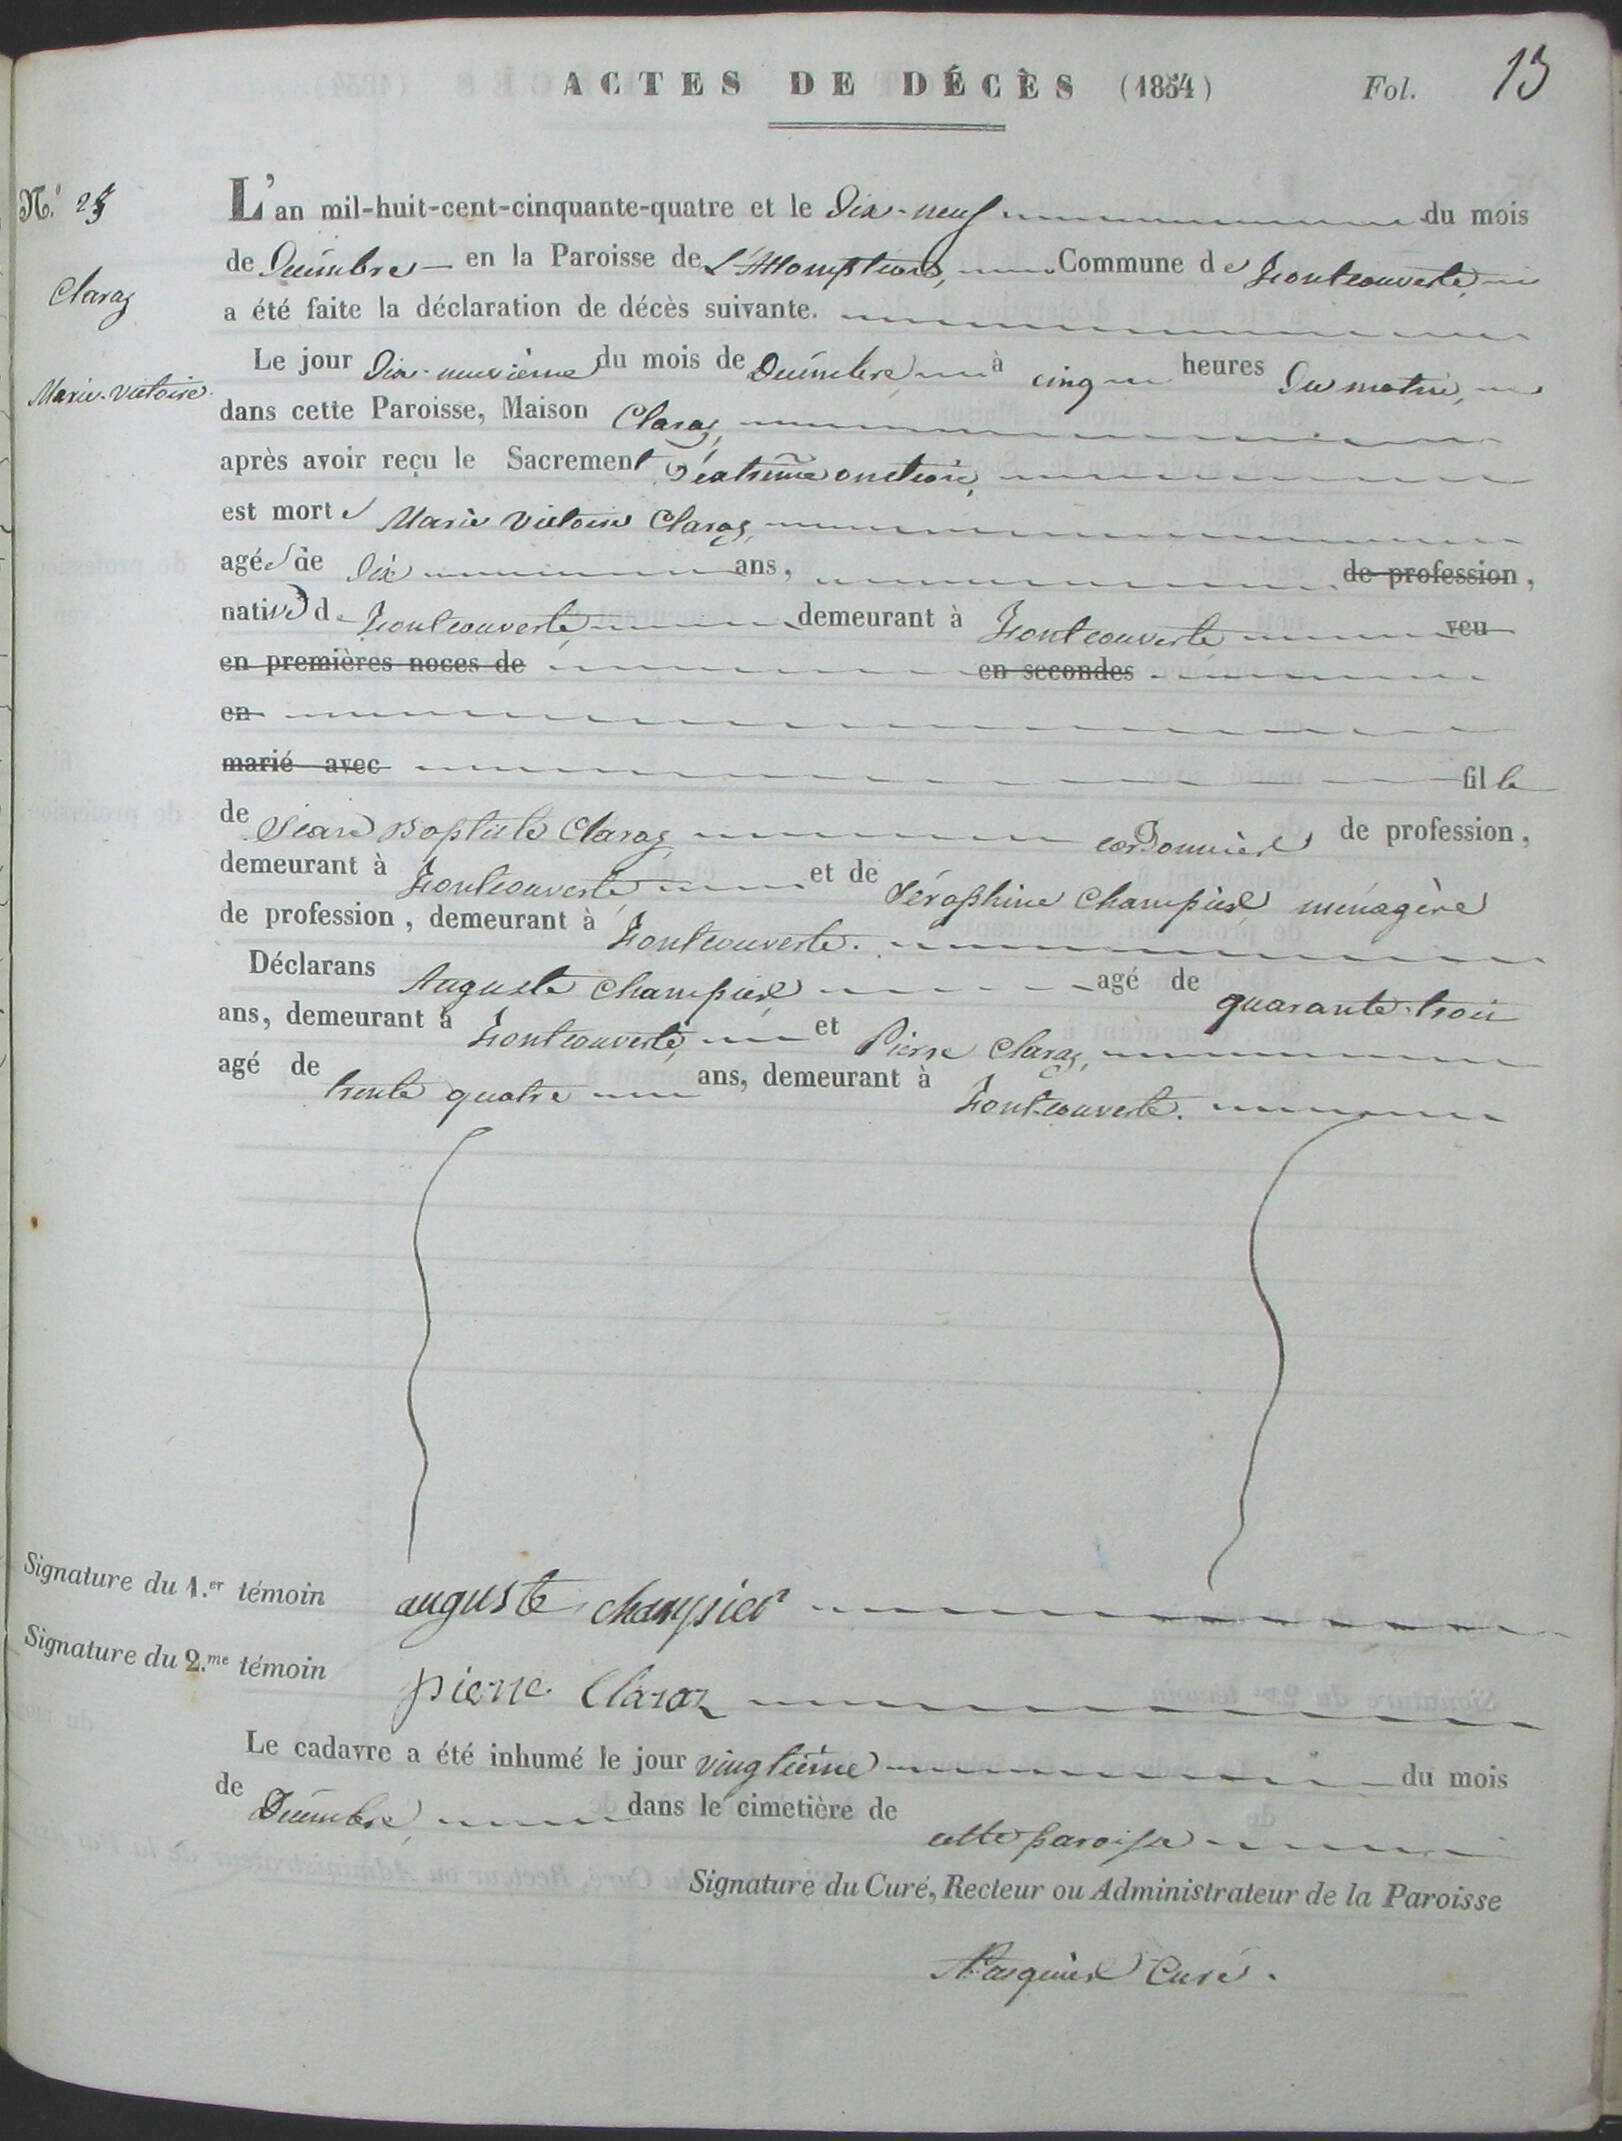 ACTES DE DÉCÈS (1854) Fol. 13
N.° 25
Claraz
Marie-Victoire
L'an mil-huit-cent-cinquante-quatre et le Dix-neuf du mois
de Décembre en la Paroisse de L'Assomption, Commune de Fontcouverte,
a été faite la déclaration de décès suivante.
Le jour Dix-neuvième du mois de Décembre à cinq heures Du matin,
dans cette Paroisse, Maison Claraz,
après avoir reçu le Sacrement D'extrême onction,
est morte Marie Victoire Claraz,
agée de Dix ans, de profession,
native de Fontcouverte demeurant à Fontcouverte veu
en premières noces de en secondes
en
marié avec fille
de Jean Baptiste Claraz cordonnier de profession,
demeurant à Fontcouverte et de Séraphine Champier ménagère
de profession, demeurant à Fontcouverte.
Déclarans Auguste Champier agé de quarante-trois
ans, demeurant à Fontcouverte, et Pierre Claraz,
agé de trente quatre ans, demeurant à Fontcouverte.
Signature du 1.er témoin auguste champier
Signature du 2.me témoin pierre Claraz
Le cadavre a été inhumé le jour vingtième du mois
de Décembre, dans le cimetière de cette paroisse
Signature du Curé, Recteur ou Administrateur de la Paroisse
Pasquier Curé.